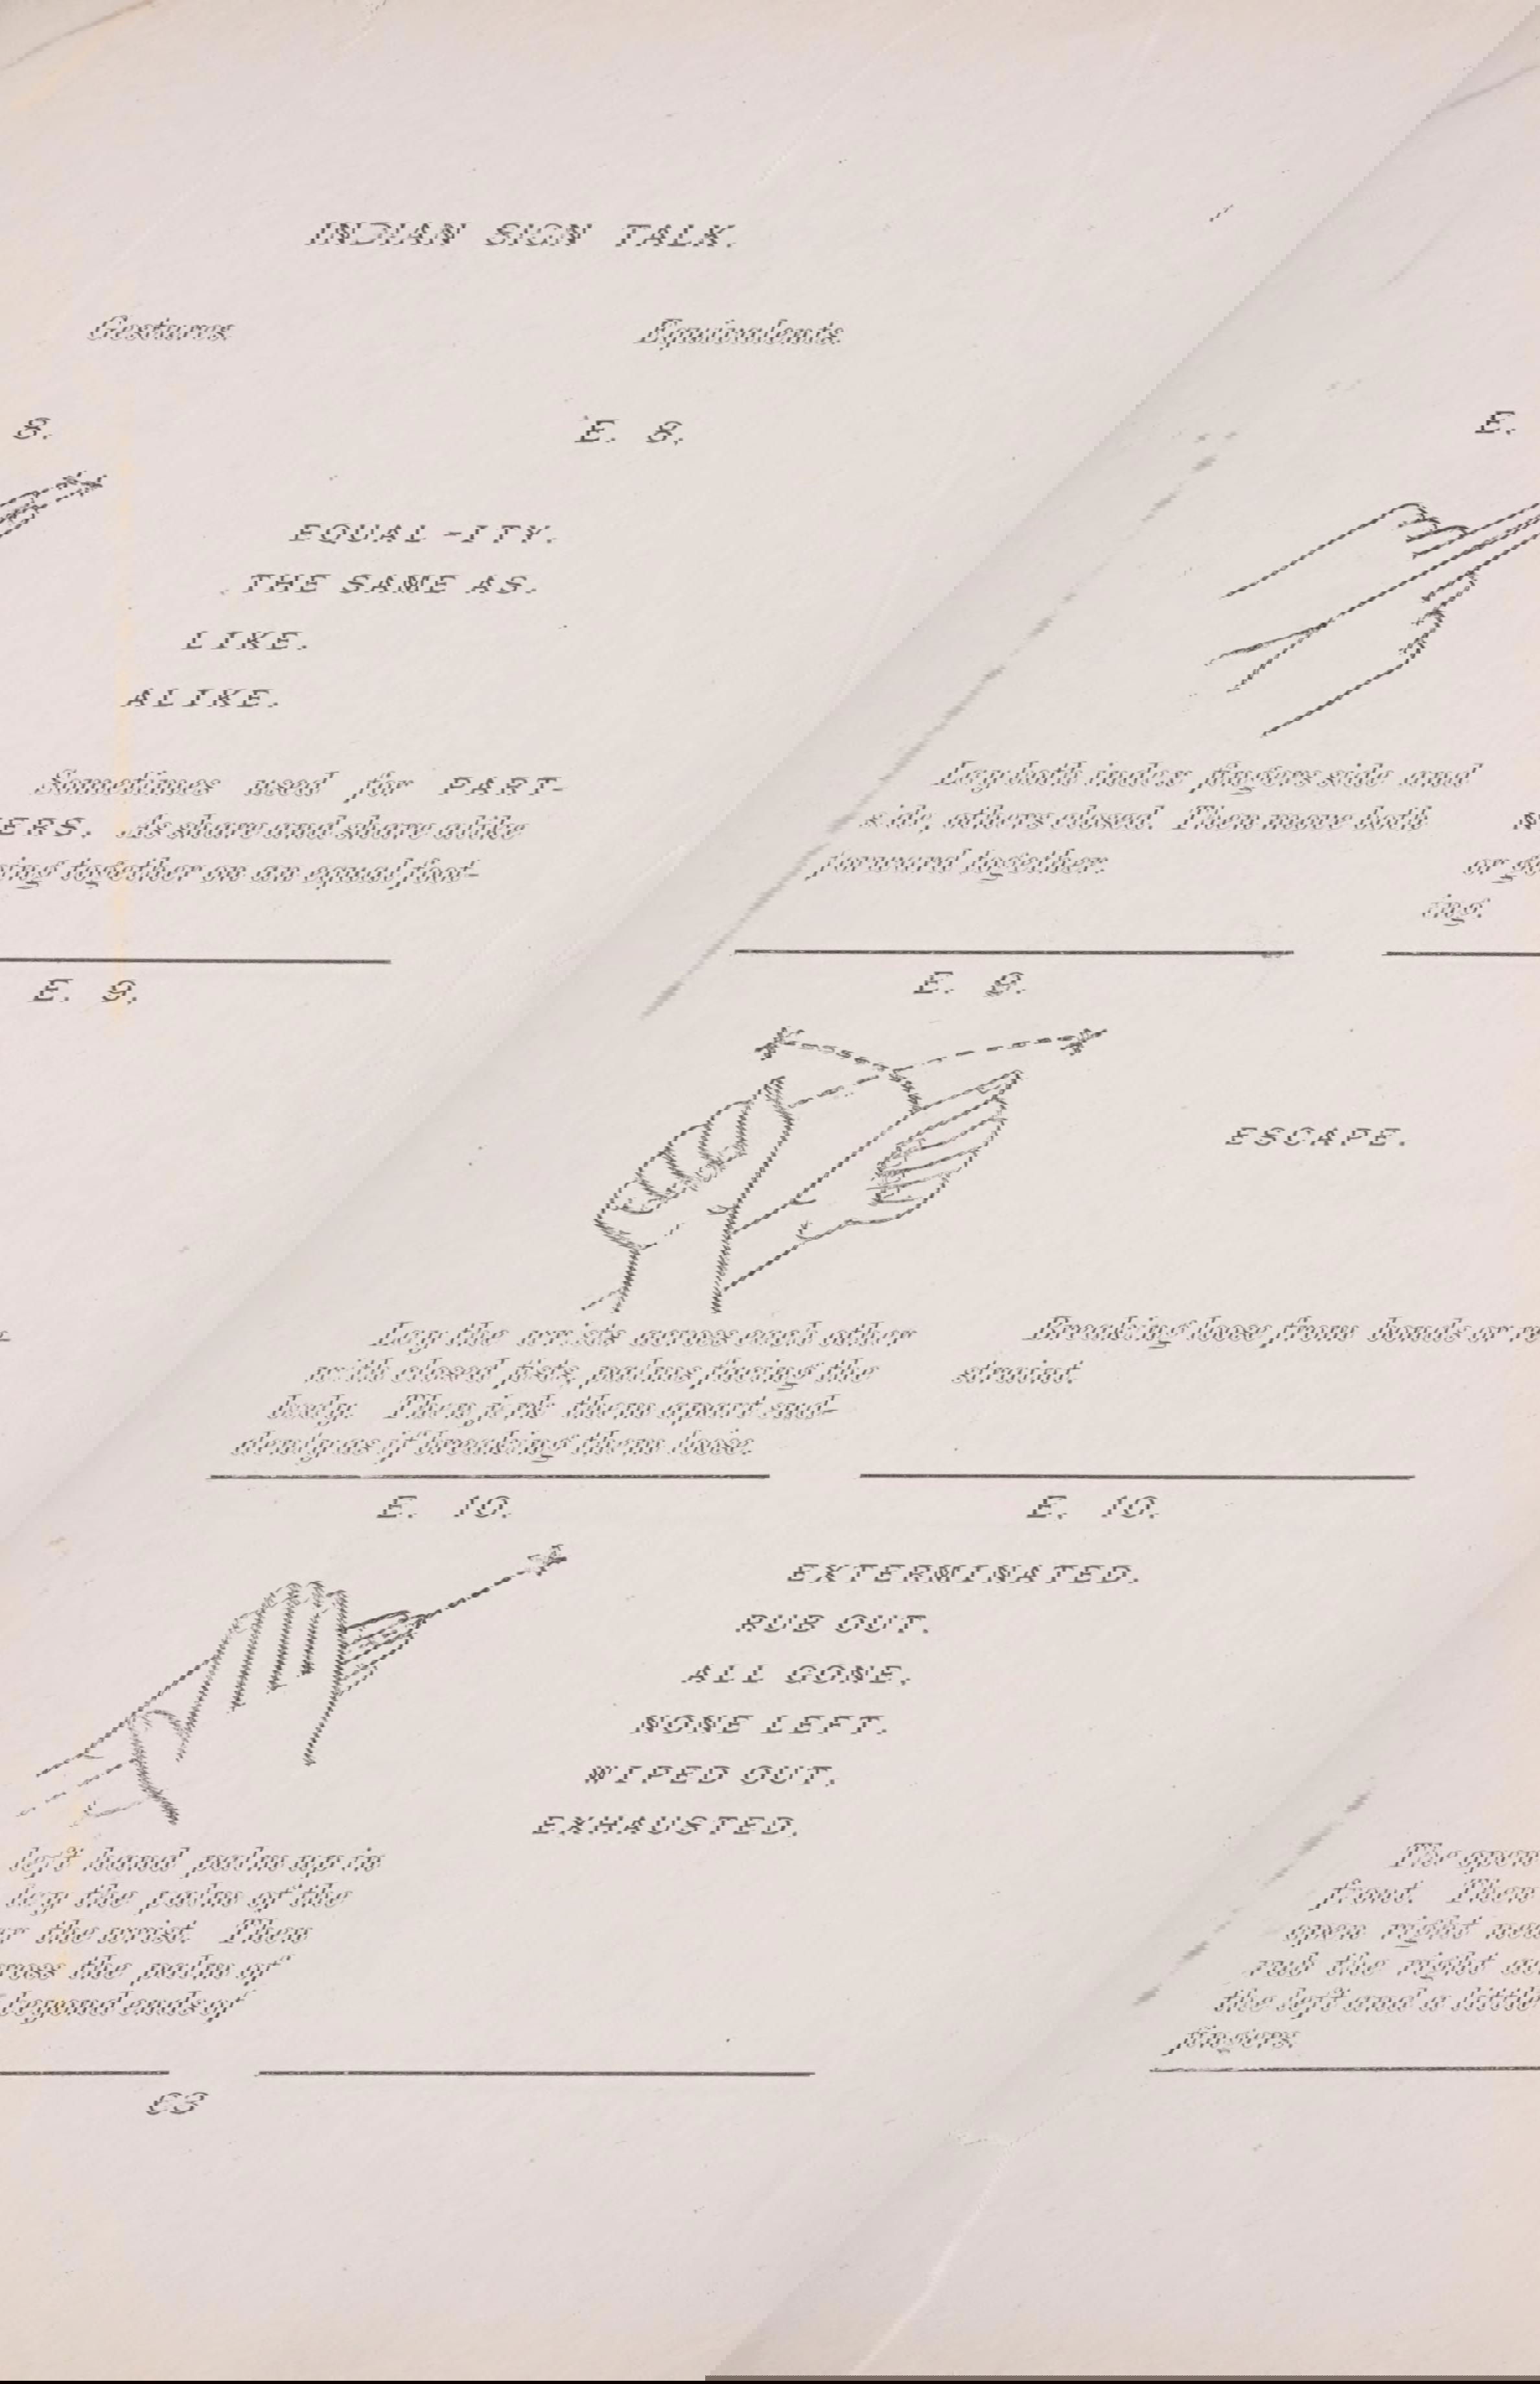 INDIAN SIGN TALK.
Gestures Equivalents
8. E. 8. E.
EQUAL-ITY.
THE SAME AS.
LIKE.
ALIKE.
Sometimes used for PART-
ERS. As share and share alike
ing together on an equal foot-
Lay both index fingers side and
side, others closed. Then move both
forward together.
or go
ing.
E. 9. E. 9.
ESCAPE.
Lay the wrists across each other
with closed fists, palms facing the
body. Then jerk them apart sud-
denly as if breaking them loose.
Breaking loose from bonds or re
straint.
E. 10. E. 10.
EXTERMINATED.
RUB OUT.
ALL GONE.
NONE LEFT.
WIPED OUT.
EXHAUSTED.
left hand palm up in
lay the palm of the
r the wrist. Then
ross the palm of
beyond ends of
The open
front. Then
open right nea
rub the right ac
the left and a little
fingers.
63